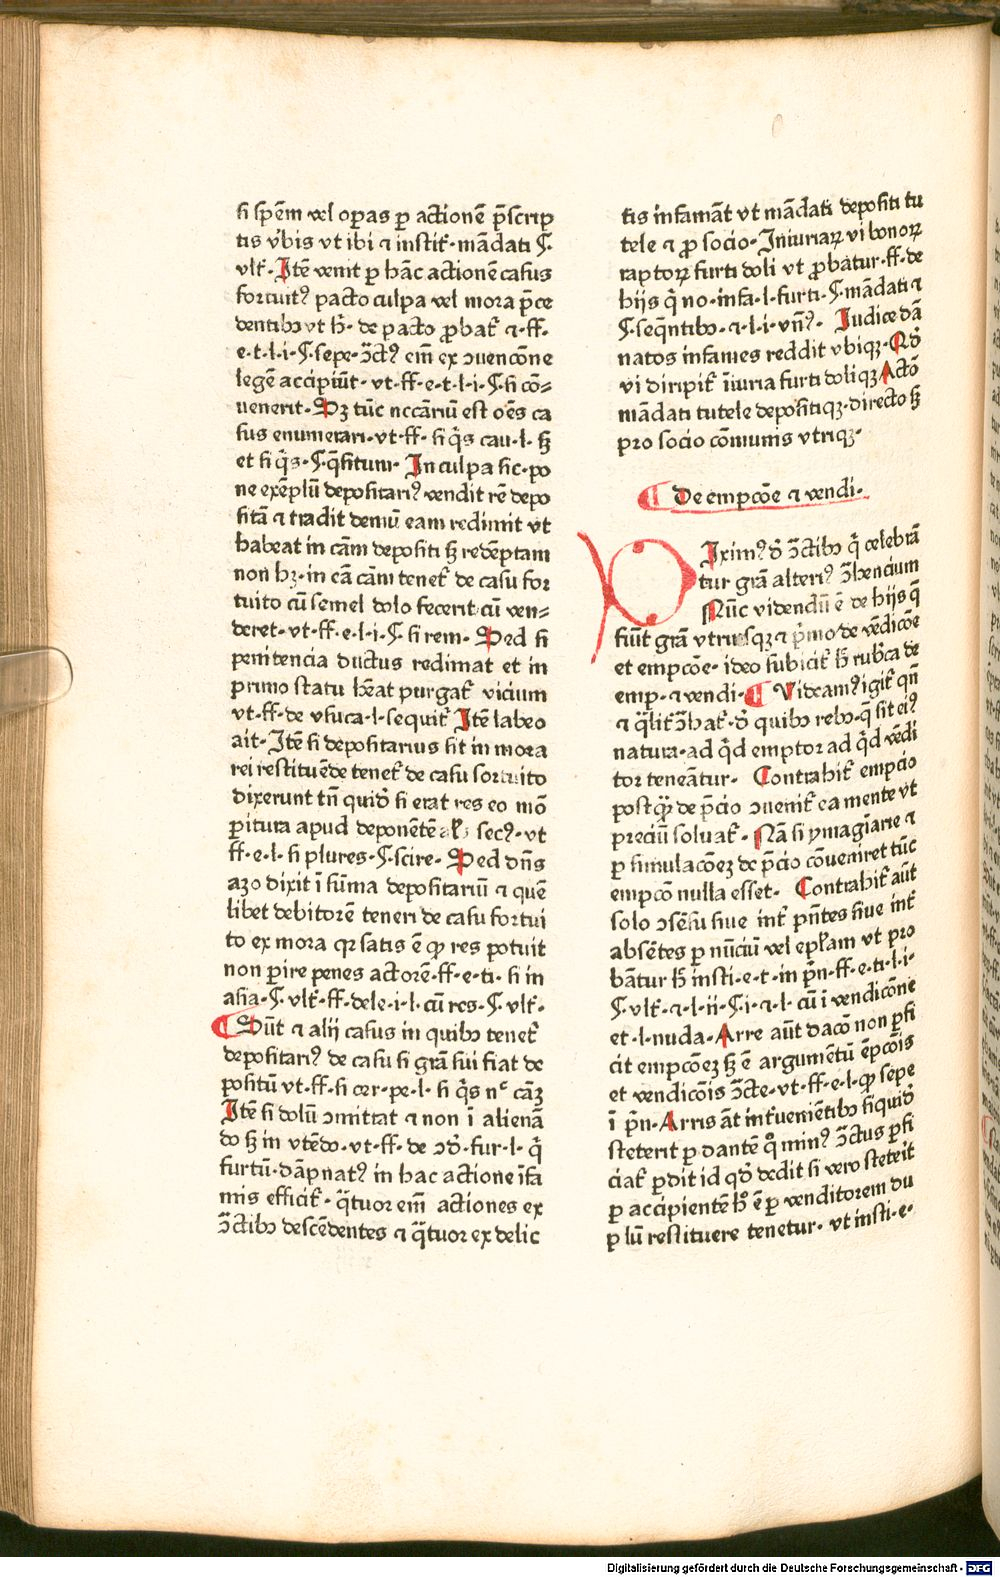 si spem̄ vel oꝑas ꝑ actionē p̄scrip
tis v̓bis vt ibi ⁊ instit̄· mādati §·
vlt̄· Itē venit ꝑ hāc actionē casus
fortuitꝰ pacto culpa vel mora p̄ce
dentibꝰ vt ħ· de pacto ꝓbat̄ ⁊·ff·
e·t·l·i·§·sepe·ꝯctꝰ em̄ ex ꝯuencōne
legē accipiūt· vt·ff·e·t·l·i·§·si cō-
uenerit· Sꝫ tūc nccāriū est oēs ca
sus enumerari·vt·ff·si q̄s cau·l·sꝫ
et si q̄s·§·q̄situm· In culpa sic·po
ne exēplū depositariꝰ vendit rē depo
sitā ⁊ tradit demū eam redimit vt
habeat in cām depositi sꝫ redēptam
non hꝫ·in eā cām tenet̄ de casu for
tuito cū semel dolo fecerit cū ven-
deret·vt·ff·e·l·i·§·si rem· Sed si
penitencia ductus redimat et in
primo statu hēat purgat̄ vicium
vt·ff·de vsuca·l·sequit̄ Itē labeo
ait· Itē si depositarius sit in mora
rei restituēde tenet̄ de casu fortuito
dixerunt tn̄ quid̓ si erat res eo mō
ꝑitura apud deponētē secꝰ·vt
ff·e·l·si plures·§·scire· Sed dn̄s
azo dixit ī sūma depositariū ⁊ quē
libet debitorē teneri de casu fortui
to ex mora qꝛ satis ē ꝙ res potuit
non ꝑire penes actorē·ff·e·ti·si in
asia·§·vlt̄·ff·de le·i·l·cū res·§·vlt̄·
¶ Sūt ⁊ alij casus in quibꝰ tenet̄
depositariꝰ de casu si grā sui fiat de
positū vt·ff·si cer·pe·l·si q̄s nᶜ cāꝫ
Itē si dolū ꝯmittat ⁊ non ī alienā
do sꝫ in vtēdo·vt·ff·de ꝯd̓·fur·l·q̄
furtū·dāpnatꝰ in hac actione īfa
mis efficit̄· q̄tuor em̄ actiones ex
ꝯctibꝰ descēdentes ⁊ q̄tuor ex delic
tis infamāt vt mādati depositi tu
tele ⁊ ꝓ socio· Iniuriaꝝ vi bonoꝝ
raptoꝝ furti doli vt ꝓbatur·ff·de
hijs q̄ no·infa·l·furti·§·mādati ⁊
§·seq̄ntibꝰ·⁊·l·i·vn̄ꝰ· Iudice dā
natos infames reddit vbiqꝫ· Qd̓
vi diripit̄ īiuria furti doliqꝫ Actō
mādati tutele depositiqꝫ·directo sꝫ
pro socio cōmunis vtriqꝫ·
¶ De empcōe ⁊ vendi·
DIximꝰ d̓ ꝯctibꝰ q̄ celebrā
tur grā alteriꝰ ꝯhencium
Nūc videndū ē de hijs q̄
fiūt grā vtriusqꝫ ⁊ p̄mo de vēdicōe
et empcōe· ideo subicit̄ ħ rub̓ca de
emp·⁊ vendi· ¶ Videamꝰ igit̄ qn̄
⁊ q̄lit̄ ꝯhat̄·d̓ quibꝰ rebꝰ·q̄ sit eiꝰ
natura·ad q̄d emptor ad q̄d vēdi
tor teneātur· Contrahit̄ empcio
postq̄ꝫ de p̄cio ꝯuenit̄ ea mente vt
preciū soluat̄· Nā si ymaginarie ⁊
ꝑ simulacōeꝫ de p̄cio cōueniret tūc
empcō nulla esset· Contrahit̄ aūt
solo ꝯsēsu siue int̄ p̄ntes siue int̄
absētes ꝑ nūciū vel epl̄am vt pro
bātur ħ insti·e·t·in p̄n·ff·e·ti·l·i·
§·vlt̄·⁊·l·ij·§·i·⁊·l·cū ī vendicōne
et·l·nuda· Arre aūt dacō non ꝑfi
cit empcōeꝫ sꝫ ē argumētū ēpcōis
et vendicōis ꝯcte·vt·ff·e·l·ꝙ sepe
ī p̄n· Arris āt int̄uemiētibꝰ siquid̓
steterit ꝑ dantē q̊ minꝰ ꝯctus ꝑfi
ciat̄ ꝑdit id qd̓ dedit si vero steteit̄
ꝑ accipientē h̊ ē ꝑ venditorem du
plū restituere tenetur· vt insti·e·
Digitalisierung gefördert durch die Deutsche Forschungsgemeinschaft - DFG